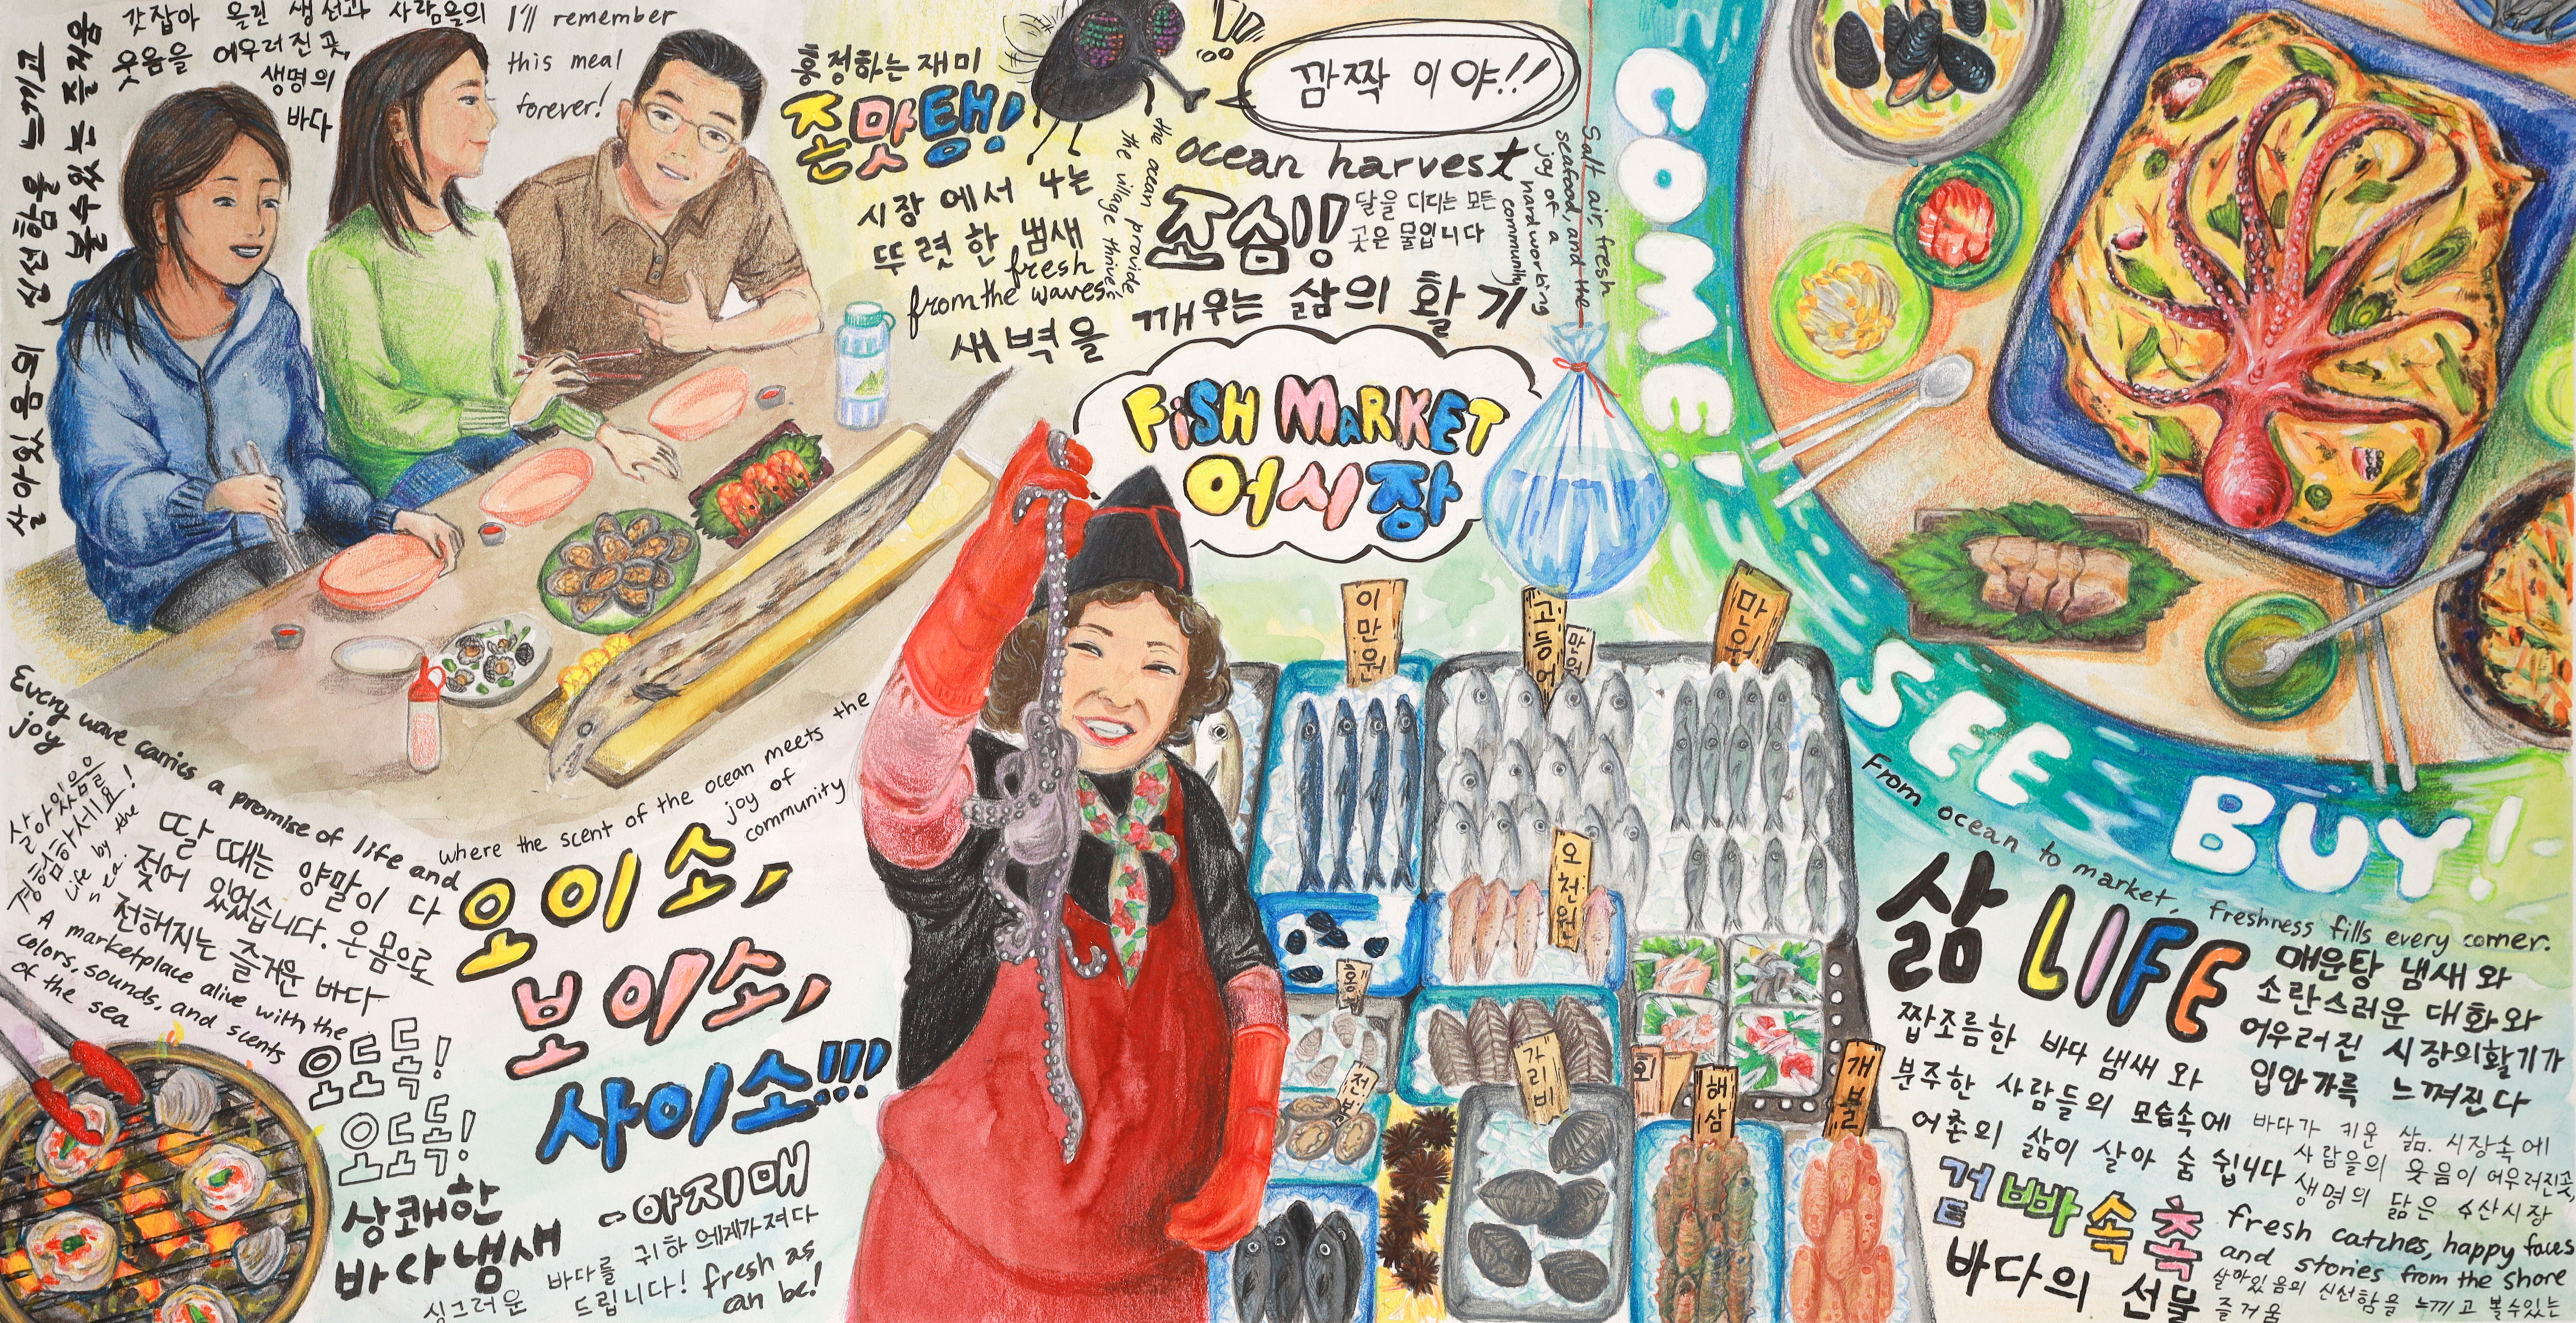 갓잡아 올린 생선과 사람들의
웃음을 어우러진 곳,
생명의
바다
살아있음의 신선함을 느끼고
볼수있는 즐거움
I'll remember
this meal
forever!
흥정하는 재미
존맛탱!
깜짝이야!!
시장에서 나는
뚜렷한 냄새
fresh
from the waves
the ocean provides
the village thrives
ocean harvest
조심!!
달을 디디는 모든
곳은 물입니다
Salt air, fresh
seafood, and the
joy of a
hardworking
community
새벽을 깨우는 삶의 활기
FISH MARKET
어시장
COME!
SEE
BUY!
이만원
고등어
만원
마리
오천원
홍합
전복
가리비
회
해삼
개불
Every wave carries a promise of life and
joy
where the scent of the ocean meets the
joy of
community
살아있음을
경험하세요!
Life by the
sea.
딸 때는 양말이 다
젖어 있었습니다. 온 몸으로
전해지는 즐거운 바다
A marketplace alive with the
colors, sounds, and scents
of the sea
오이소,
보이소,
사이소!!!
-아지매
오도독!
오도독!
상쾌한
바다냄새
싱그러운 바다를 귀하에게 가져다
드립니다! fresh as
can be!
From ocean to market, freshness fills every corner.
삶 LIFE
매운탕 냄새와
소란스러운 대화와
어우러진 시장의 활기가
입안가득 느껴진다
짭조름한 바다 냄새와
분주한 사람들의 모습속에
어촌의 삶이 살아 숨 쉽니다
바다가 키운 삶. 시장속에
사람들의 웃음이 어우러진곳
생명의 닮은 수산시장
겉빠속촉
바다의 선물
fresh catches, happy faces
and stories from the shore
살아있음의 신선함을 느끼고 볼수있는
즐거움